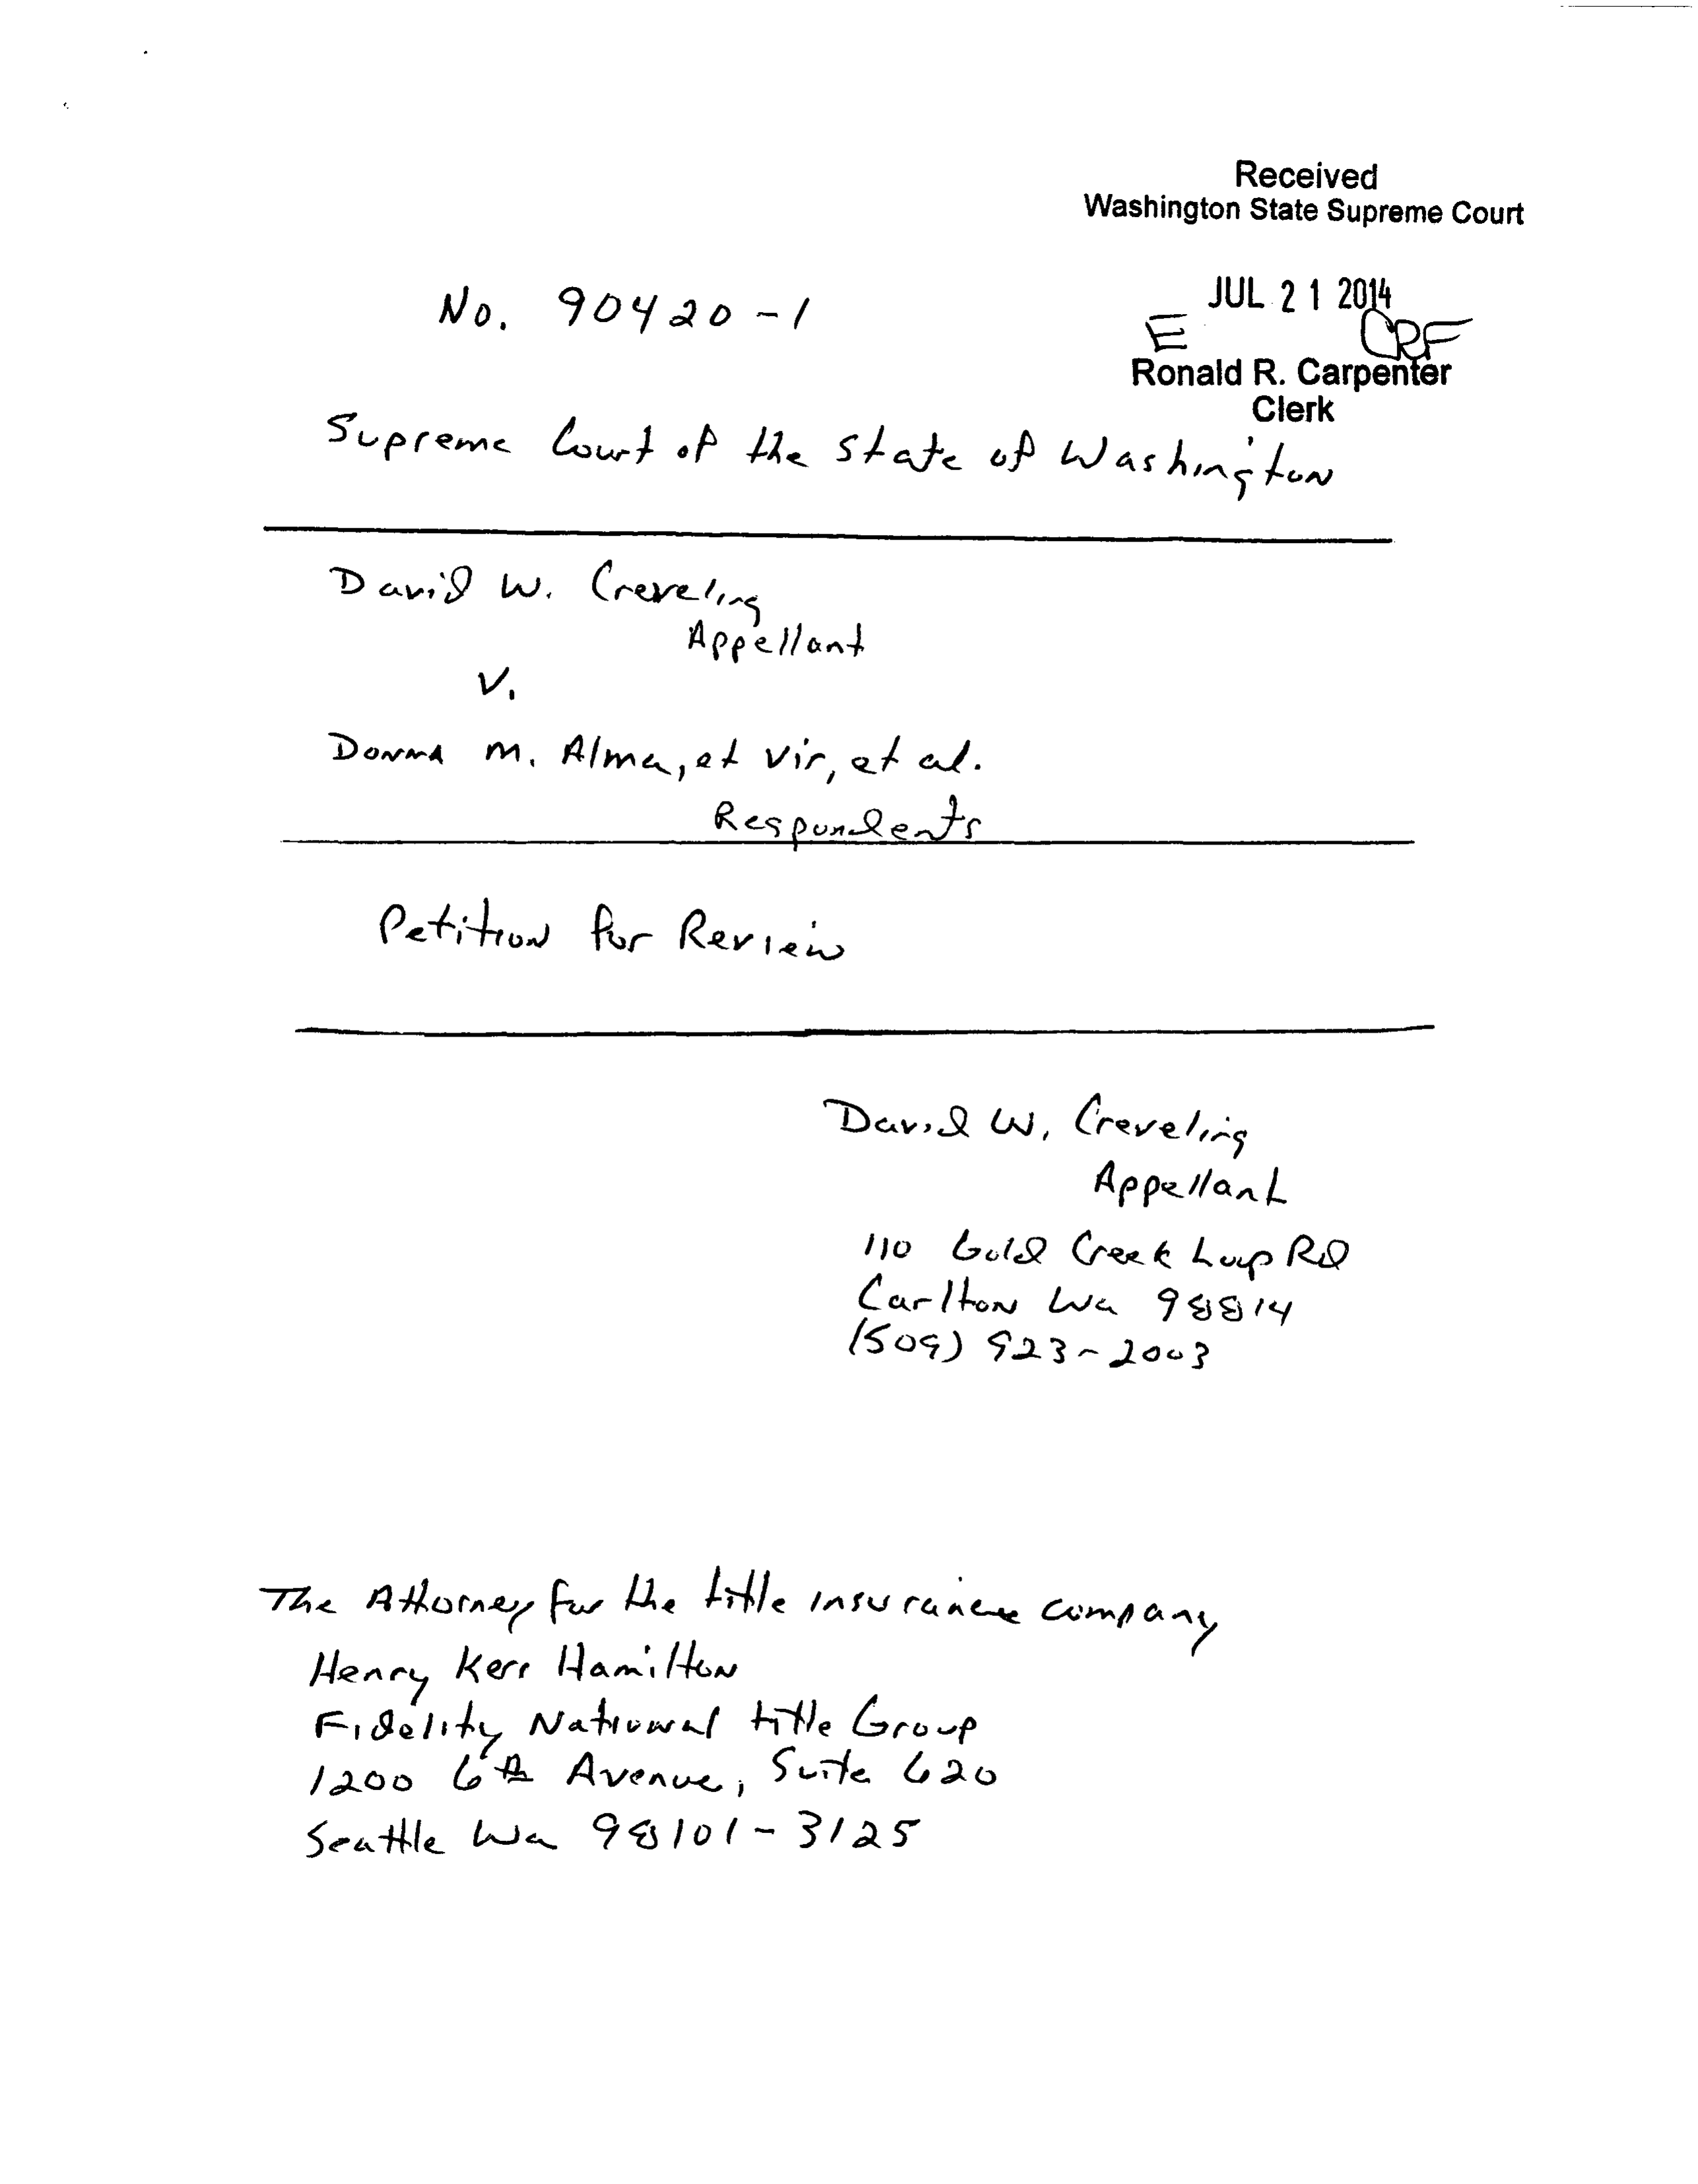 Received
Washington State Supreme Court
No. 90420-1
JUL 21 2014
E CRF
Ronald R. Carpenter
Clerk
Supreme Court of the State of Washington
David W. Creveling
Appellant
V.
Donna M. Alma, et vir, et al.
Respondents
Petition for Review
David W. Creveling
Appellant
110 Gold Creek Loop Rd
Carlton Wa 98814
(509) 923-2003
The Attorney for the title insurance company
Henry Kerr Hamilton
Fidelity National title Group
1200 6th Avenue, Suite 620
Seattle Wa 98101-3125